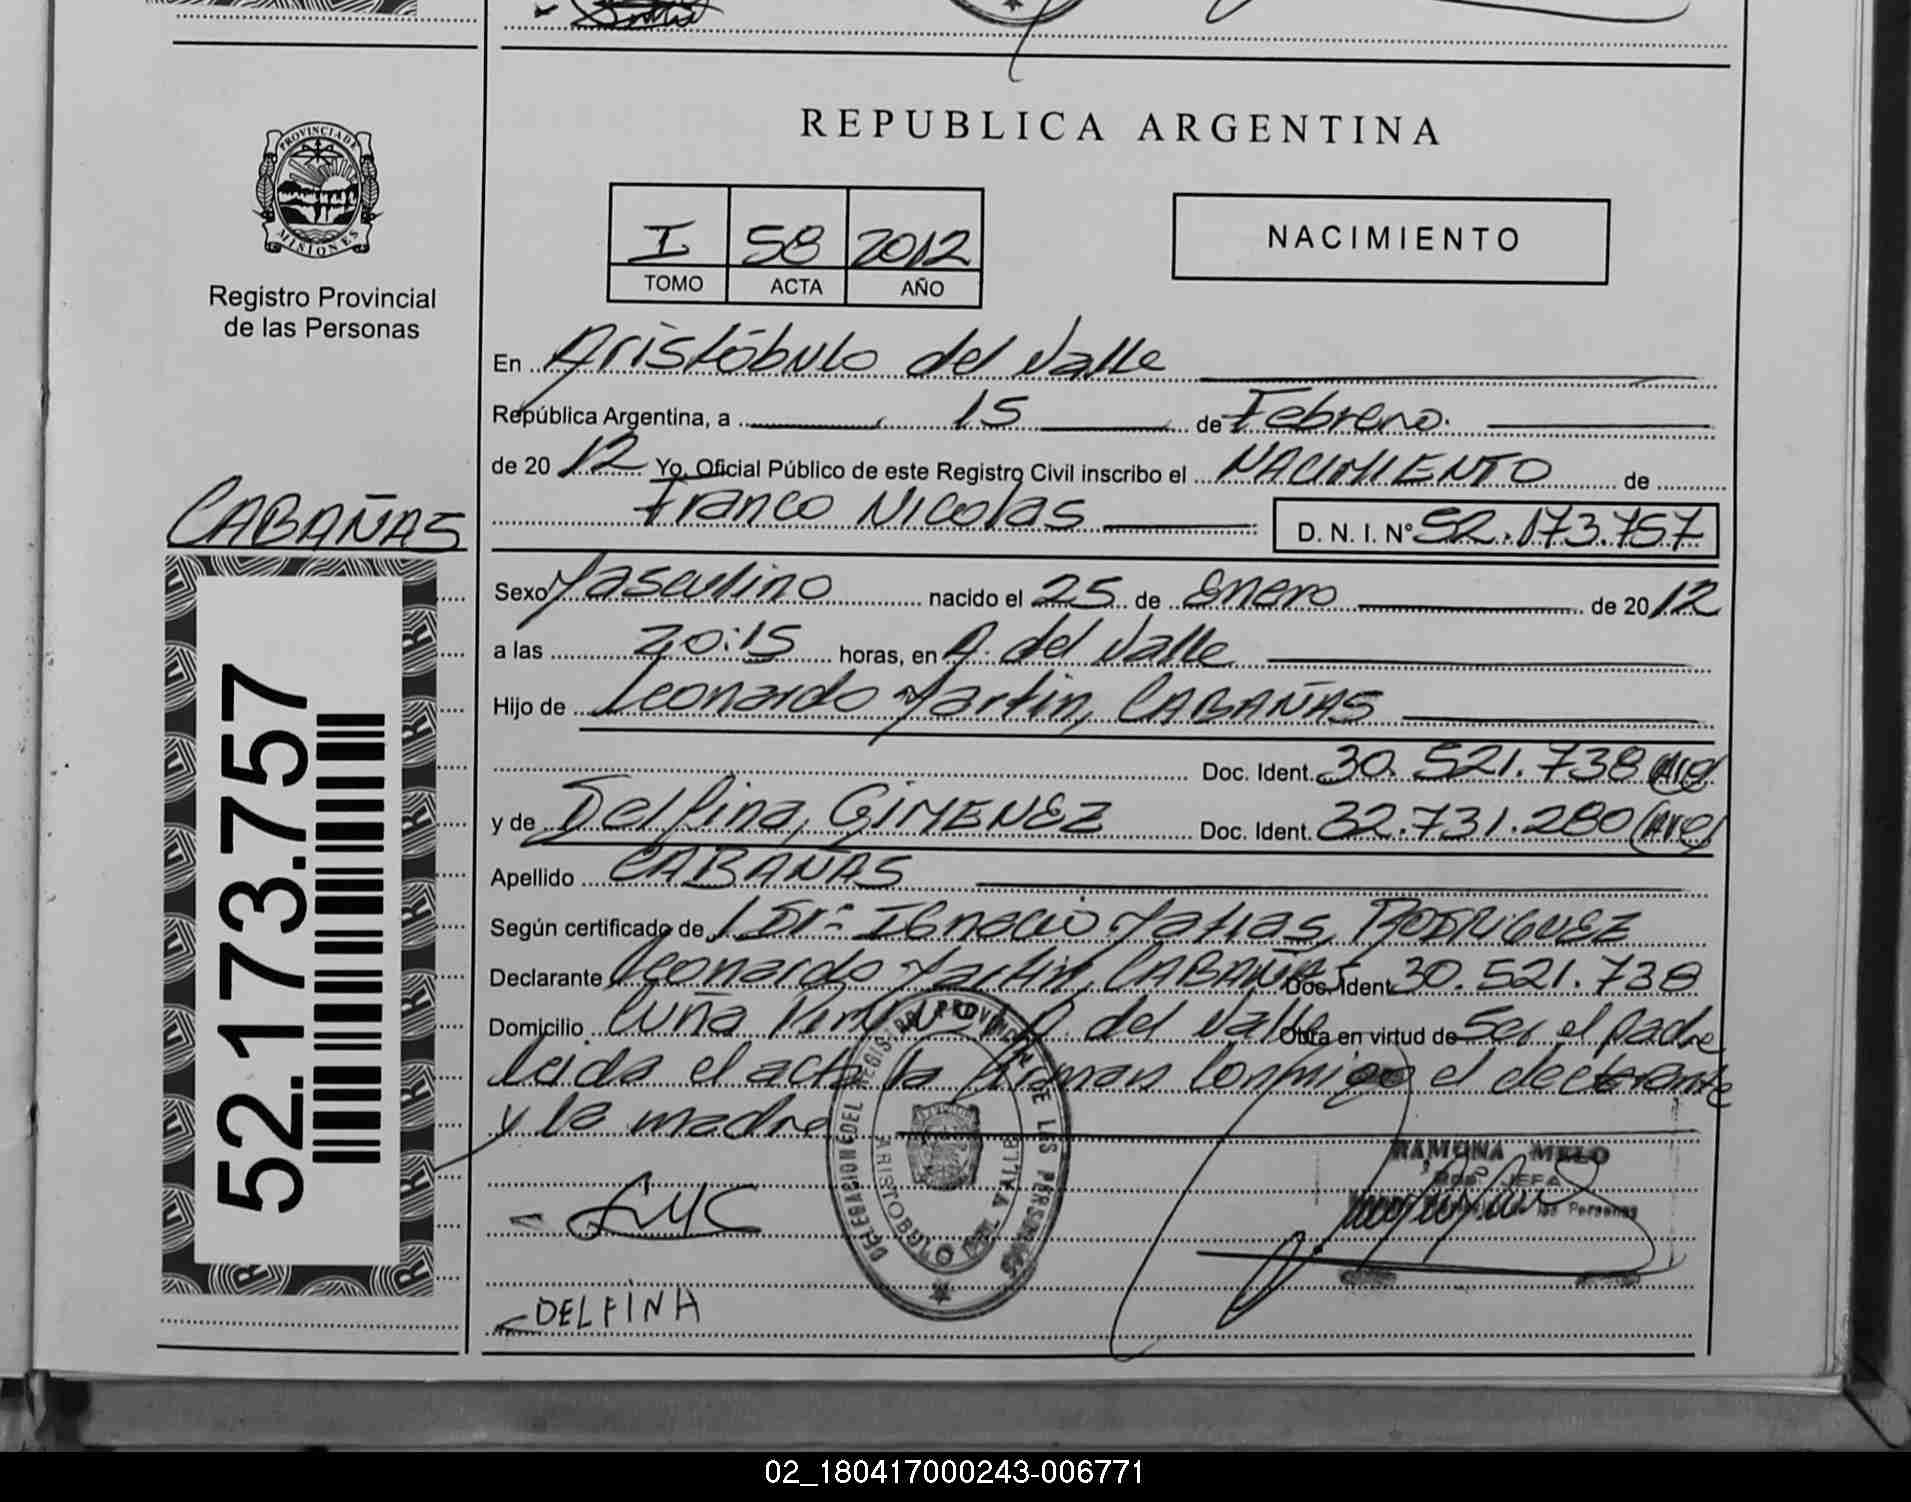 REPUBLICA ARGENTINA
PROVINCIA DE
MISIONES
Registro Provincial
de las Personas
I 58 2012
TOMO ACTA AÑO
NACIMIENTO
En Aristóbulo del Valle
República Argentina, a 15 de Febrero.
de 20 12 Yo, Oficial Público de este Registro Civil inscribo el NACIMIENTO de
Franco Nicolas D. N. I. Nº 52.173.757
CABAÑAS
52.173.757
Sexo Masculino nacido el 25 de Enero de 20 12
a las 20:15 horas, en A. del Valle
Hijo de Leonardo Martin, CABAÑAS
Doc. Ident. 30.521.738 (Arg)
y de Delfina, GIMENEZ Doc. Ident. 32.731.280 (Arg)
Apellido CABAÑAS
Según certificado de Dr. Ignacio Matias, RODRIGUEZ
Declarante Leonardo Martin, CABAÑAS Doc. Ident. 30.521.738
Domicilio Cuña Pirú A. del Valle Obra en virtud de Ser el padre
leida el acta la firman conmigo el declarante
y la madre
DELEGACION DEL REGISTRO PROVINCIAL DE LAS PERSONAS
ARISTOBULO DEL VALLE
RAMONA MELO
JEFA
de las Personas
LMC
DELFINA
02_180417000243-006771